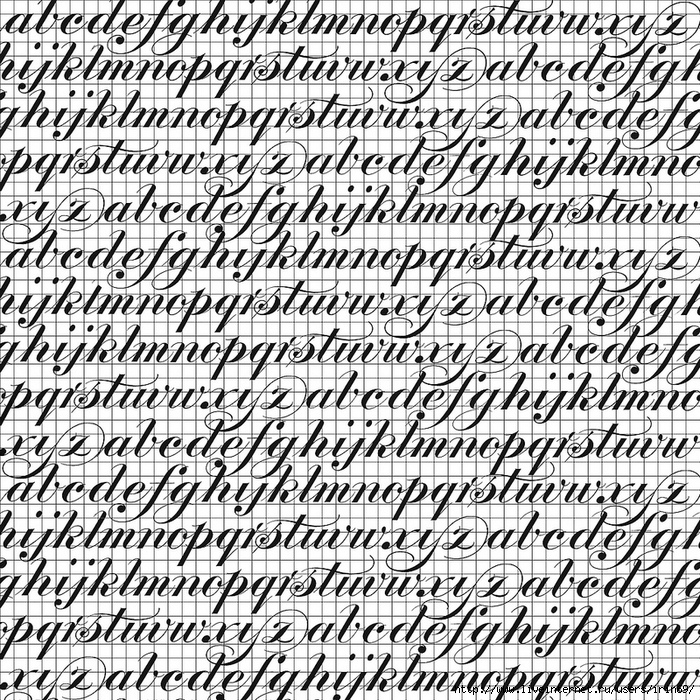 abcdefghijklmnopqrstuvwxyz
hijklmnopqrstuvwxyzabcdefgh
ghijklmnopqrstuvwxyzabcdefg
pqrstuvwxyzabcdefghijklmno
xyzabcdefghijklmnopqrstuvw
abcdefghijklmnopqrstuvwxyz
hijklmnopqrstuvwxyzabcdefgh
ghijklmnopqrstuvwxyzabcdefg
pqrstuvwxyzabcdefghijklmno
xyzabcdefghijklmnopqrstuvw
abcdefghijklmnopqrstuvwxyz
hijklmnopqrstuvwxyzabcdefgh
ghijklmnopqrstuvwxyzabcdefg
pqrstuvwxyzabcdefghijklmno
xyzabcdefghijklmnopqrstuvw